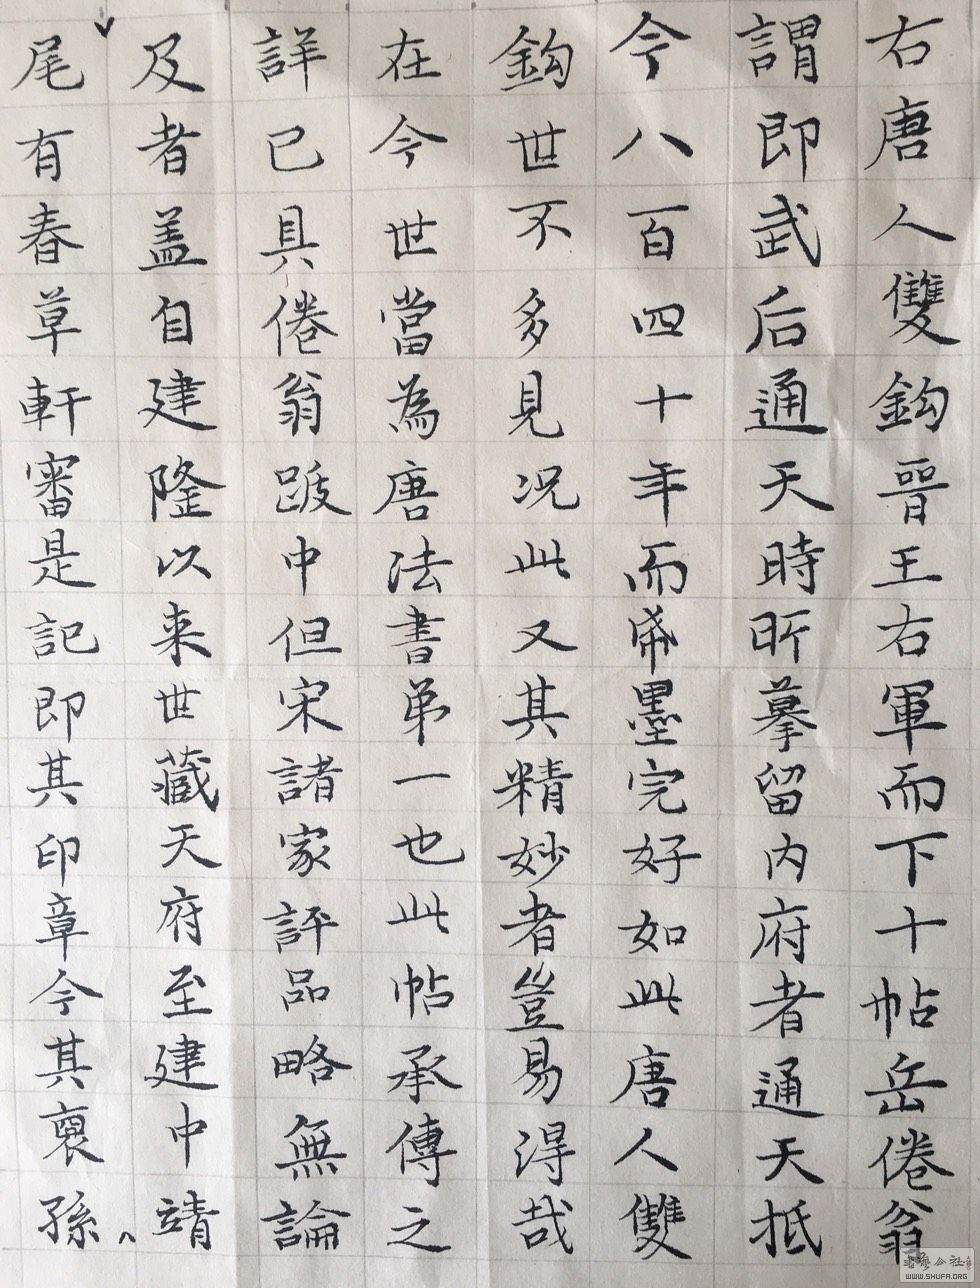 右唐人雙鈎晉王右軍而下十帖岳倦翁
謂即武后通天時所摹留内府者通天抵
今八百四十年而帋墨完好如此唐人雙
鈎世不多見况此又其精妙者豈易得哉
在今世當為唐法書弟一也此帖承傳之
詳已具倦翁跋中但宋諸家評品略無論
及者盖自建隆以来世藏天府至建中靖
尾有春草軒審是記即其印章今其裔孫
WWW.SHUFA.ORG